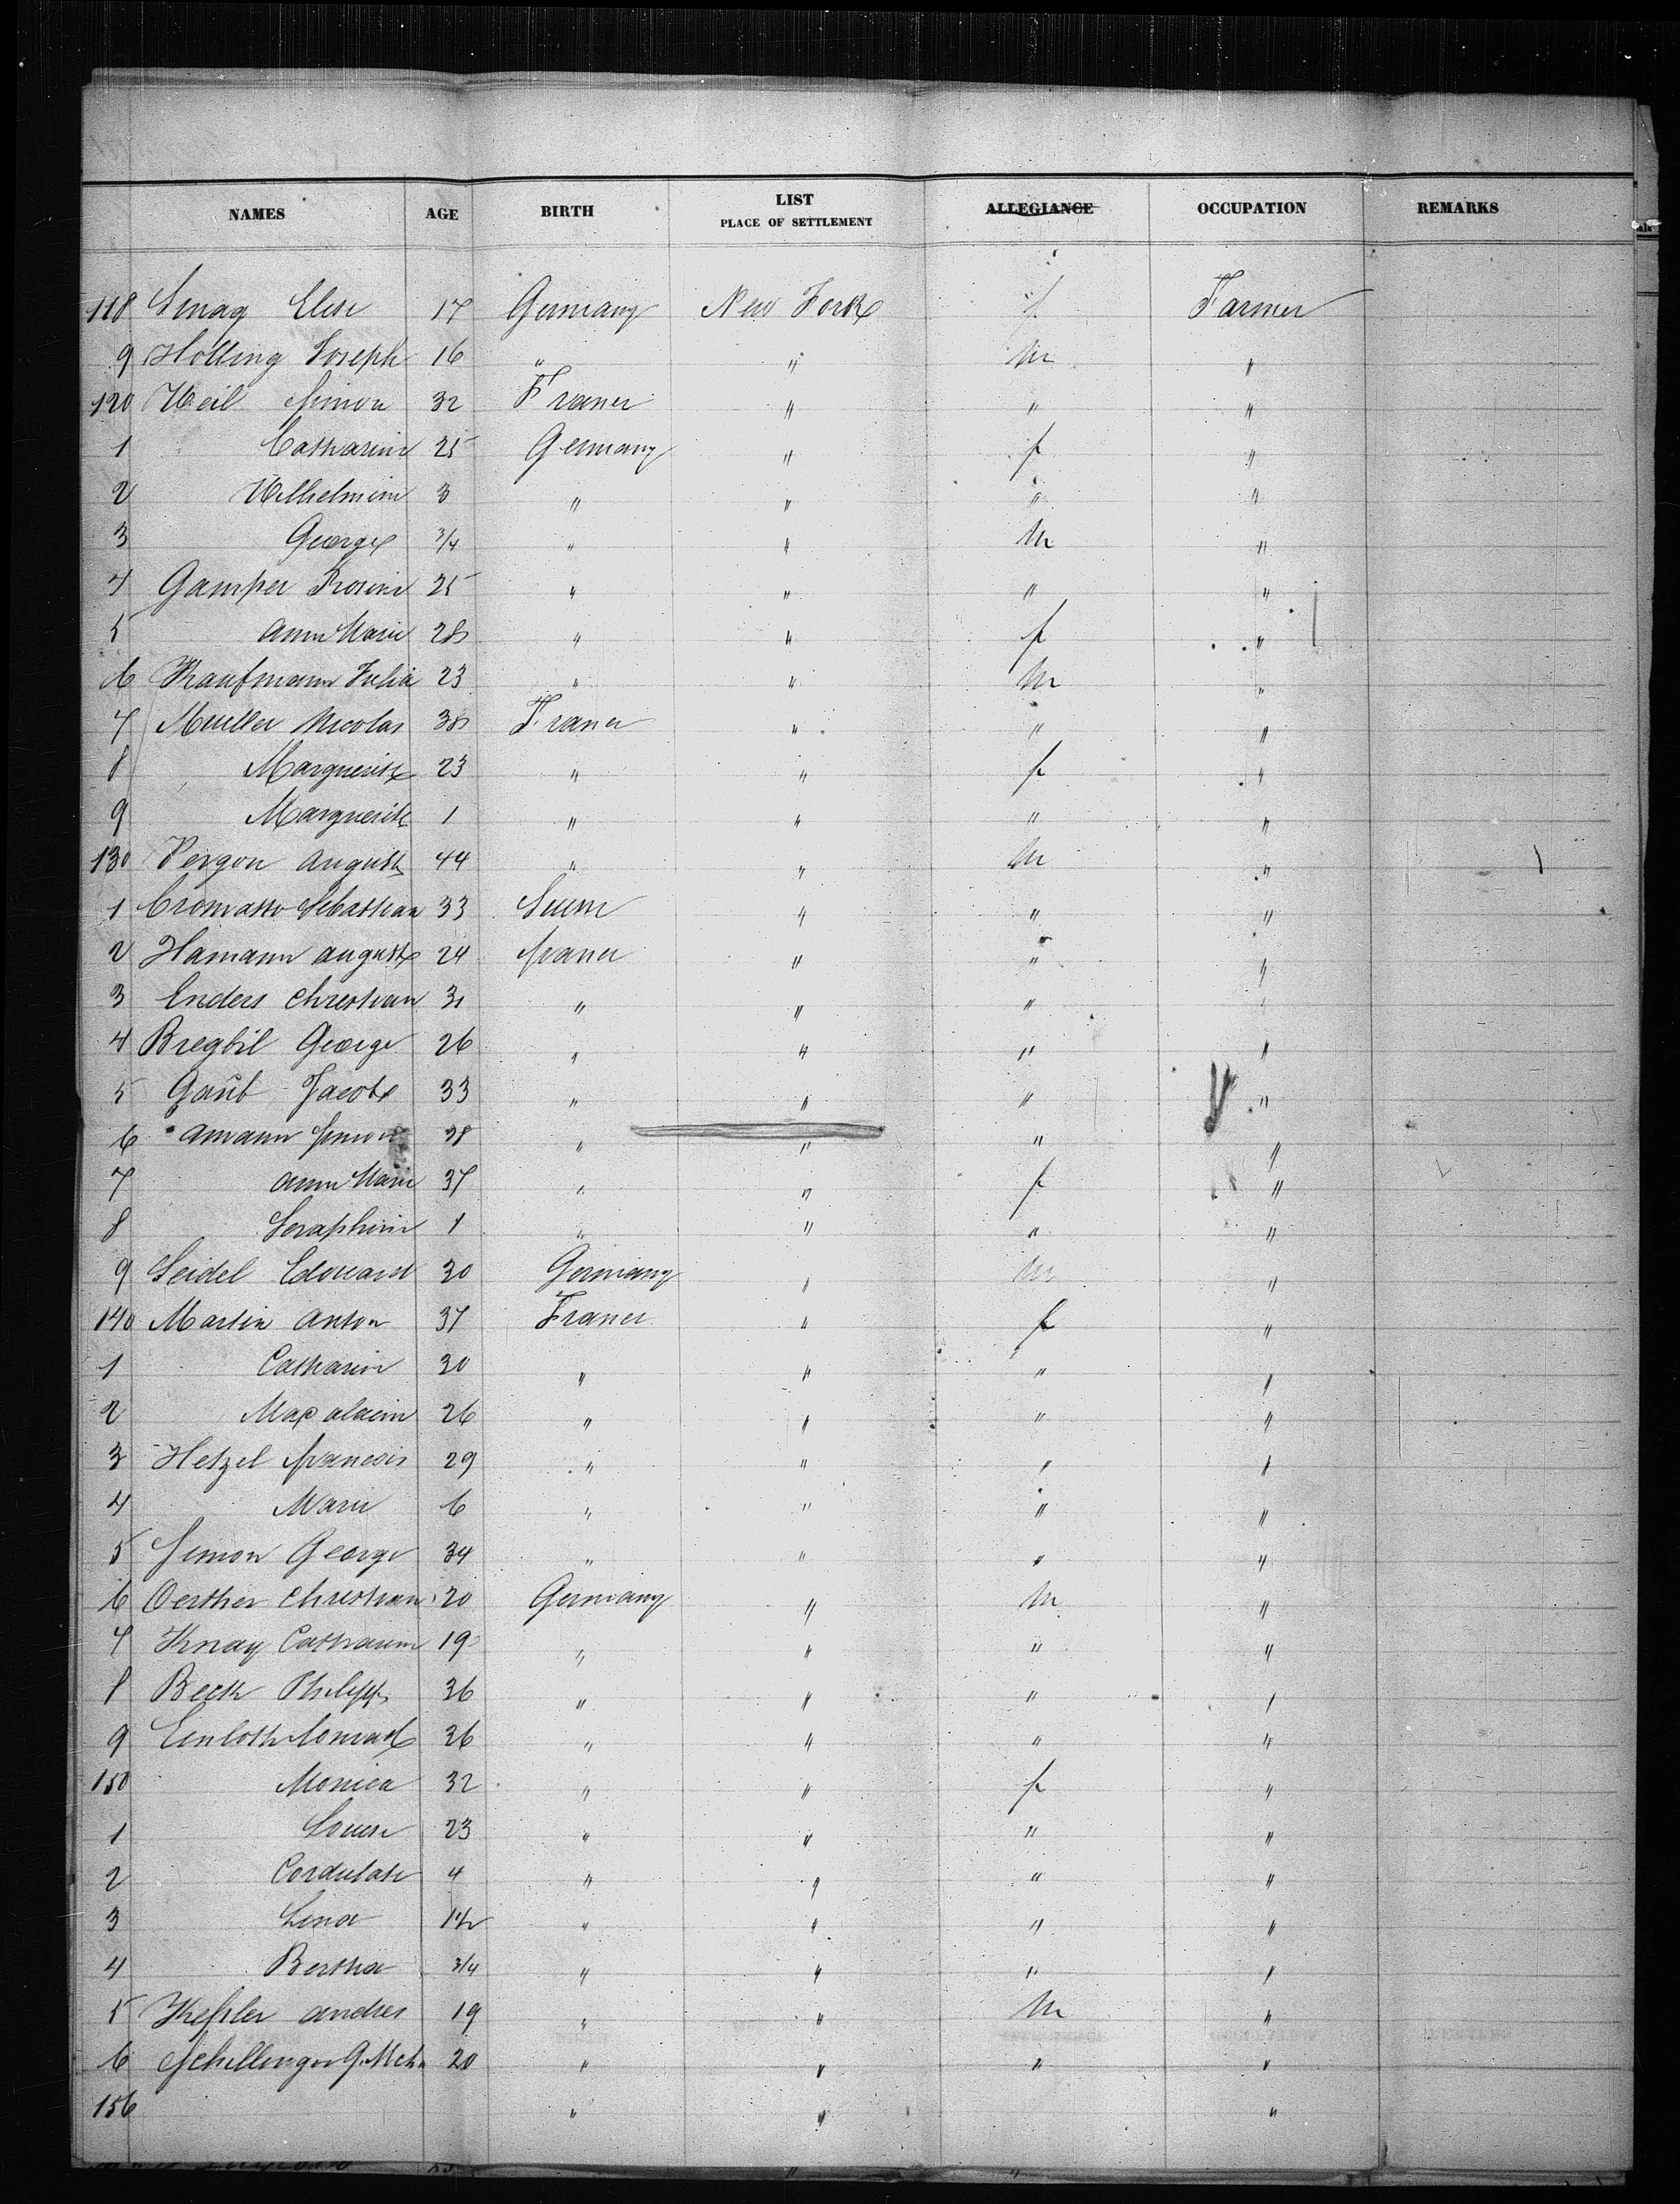 NAMES AGE BIRTH LIST PLACE OF SETTLEMENT ALLEGIANCE OCCUPATION REMARKS
118 Elise 17 Germany New York f Farmer
9 Holling Joseph 16 " " M "
120 Weil Simon 32 France " " "
1 Catharine 25 Germany " f "
2 Wilhelmine 3 " " " "
3 George 3/4 " " M "
4 Gamper Rosine 25 " " " "
5 Anna Marie 28 " " f "
6 Kaufmann Julia 23 " " M "
7 Muller Nicolas 38 France " " "
8 Marguerite 23 " " f "
9 Marguerite 1 " " " "
130 Vergon August 44 " " M "
1 Sebastian 33 " " "
2 Hamann August 24 france " " "
3 Enders Christian 31 " " " "
4 Bregbil George 26 " " " "
5 Gaub Jacob 33 " " " "
6 Amann Simon 38 " " " "
7 Anna Marie 37 " " f "
8 Seraphine 1 " " " "
9 Seidel Edouard 30 Germany " M "
140 Martin Anton 37 France " f "
1 Catharine 30 " " " "
2 26 " " " "
3 Hetzel francois 29 " " " "
4 Marie 6 " " " "
5 Simon George 34 " " " "
6 Oerther Christian 20 Germany " M "
7 Catharine 19 " " " "
8 Beck Philipp 36 " " " "
9 36 " " " "
150 Monica 32 " " f "
1 Louise 23 " " " "
2 4 " " " "
3 Lina 1 1/2 " " " "
4 Bertha 3/4 " " " "
5 Keßler Andres 19 " " M "
6 Schillinger 20 " " " "
156 " " "